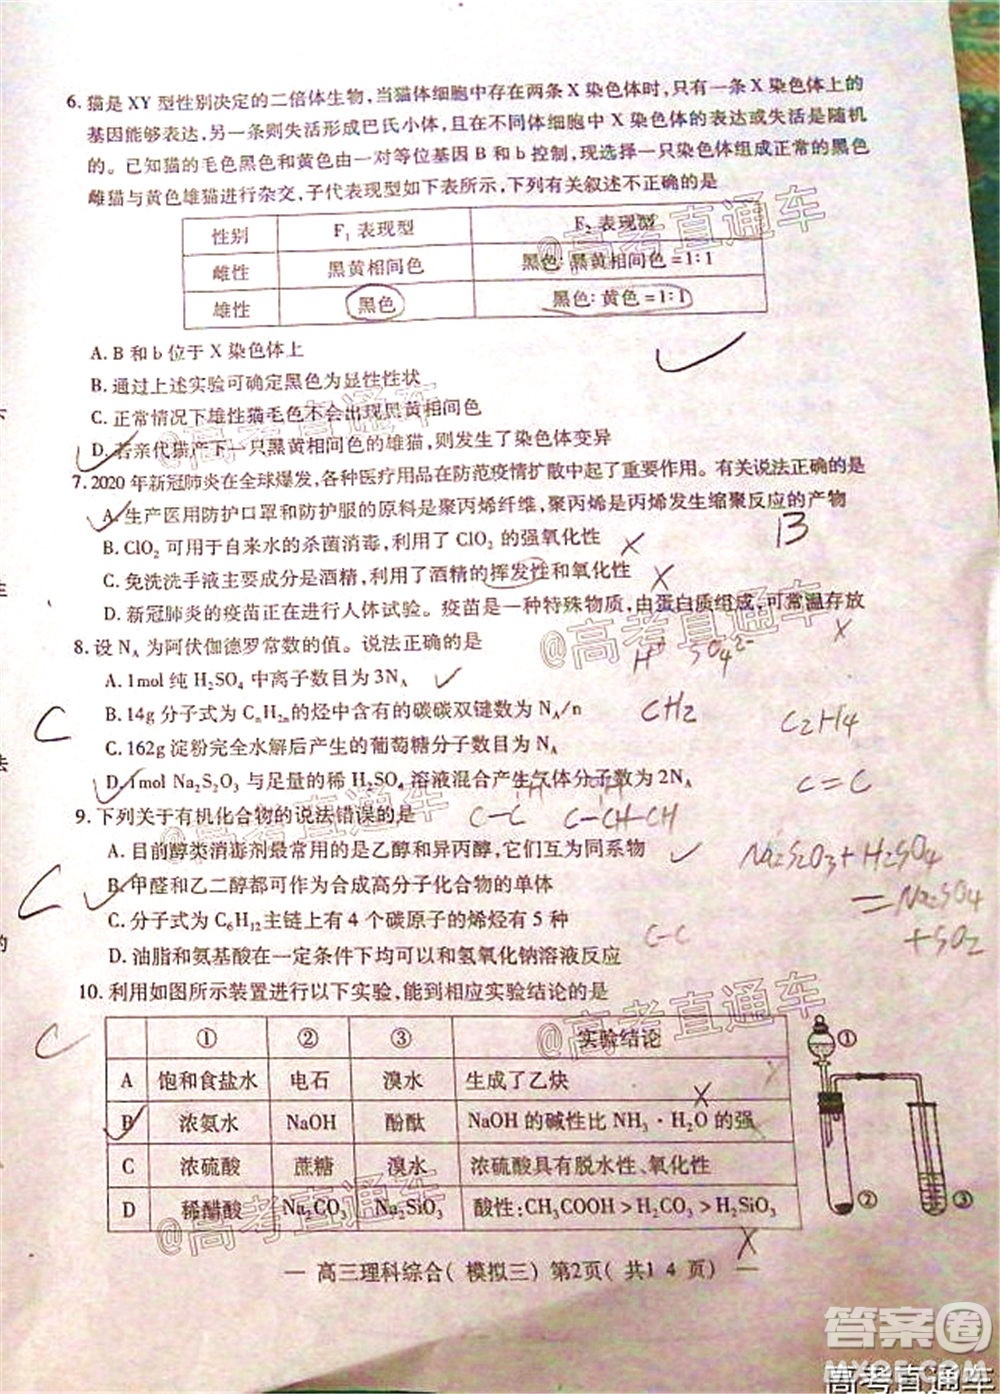 6. 猫是 XY 型性别决定的二倍体生物,当猫体细胞中存在两条 X 染色体时,只有一条 X 染色体上的
基因能够表达,另一条则失活形成巴氏小体,且在不同体细胞中 X 染色体的表达或失活是随机
的。已知猫的毛色黑色和黄色由一对等位基因 B 和 b 控制,现选择一只染色体组成正常的黑色
雌猫与黄色雄猫进行杂交,子代表现型如下表所示,下列有关叙述不正确的是
性别 F₁ 表现型 F₂ 表现型
雌性 黑黄相间色 黑色:黑黄相间色=1:1
雄性 黑色 黑色:黄色=1:1
A. B 和 b 位于 X 染色体上
B. 通过上述实验可确定黑色为显性性状
C. 正常情况下雄性猫毛色不会出现黑黄相间色
D. 若亲代猫产下一只黑黄相间色的雄猫,则发生了染色体变异
7. 2020 年新冠肺炎在全球爆发,各种医疗用品在防范疫情扩散中起了重要作用。有关说法正确的是
A. 生产医用防护口罩和防护服的原料是聚丙烯纤维,聚丙烯是丙烯发生缩聚反应的产物
B
B. ClO₂ 可用于自来水的杀菌消毒,利用了 ClO₂ 的强氧化性
C. 免洗洗手液主要成分是酒精,利用了酒精的挥发性和氧化性
D. 新冠肺炎的疫苗正在进行人体试验。疫苗是一种特殊物质,由蛋白质组成,可常温存放
8. 设 Nₐ 为阿伏伽德罗常数的值。说法正确的是
H⁺ SO₄²⁻
A. 1mol 纯 H₂SO₄ 中离子数目为 3Nₐ
C
B. 14g 分子式为 CₙH₂ₙ 的烃中含有的碳碳双键数为 Nₐ/n
CH₂ C₂H₄
C. 162g 淀粉完全水解后产生的葡萄糖分子数目为 Nₐ
D. 1mol Na₂S₂O₃ 与足量的稀 H₂SO₄ 溶液混合产生气体分子数为 2Nₐ
C=C
9. 下列关于有机化合物的说法错误的是
C-C C-CH-CH
A. 目前醇类消毒剂最常用的是乙醇和异丙醇,它们互为同系物
Na₂S₂O₃+H₂SO₄
C
B. 甲醛和乙二醇都可作为合成高分子化合物的单体
=Na₂SO₄
C. 分子式为 C₆H₁₂主链上有 4 个碳原子的烯烃有 5 种
C-C
+SO₂
D. 油脂和氨基酸在一定条件下均可以和氢氧化钠溶液反应
10. 利用如图所示装置进行以下实验,能到相应实验结论的是
C
① ② ③ 实验结论
A 饱和食盐水 电石 溴水 生成了乙炔
B 浓氨水 NaOH 酚酞 NaOH 的碱性比 NH₃·H₂O 的强
C 浓硫酸 蔗糖 溴水 浓硫酸具有脱水性、氧化性
D 稀醋酸 Na₂CO₃ Na₂SiO₃ 酸性:CH₃COOH>H₂CO₃>H₂SiO₃
①
②
③
— 高三理科综合( 模拟三) 第2页( 共1 4 页) —
@高考直通车
@高考直通车
@高考直通车
@高考直通车
@高考直通车
答案圈
MXQE.COM
高考直通车